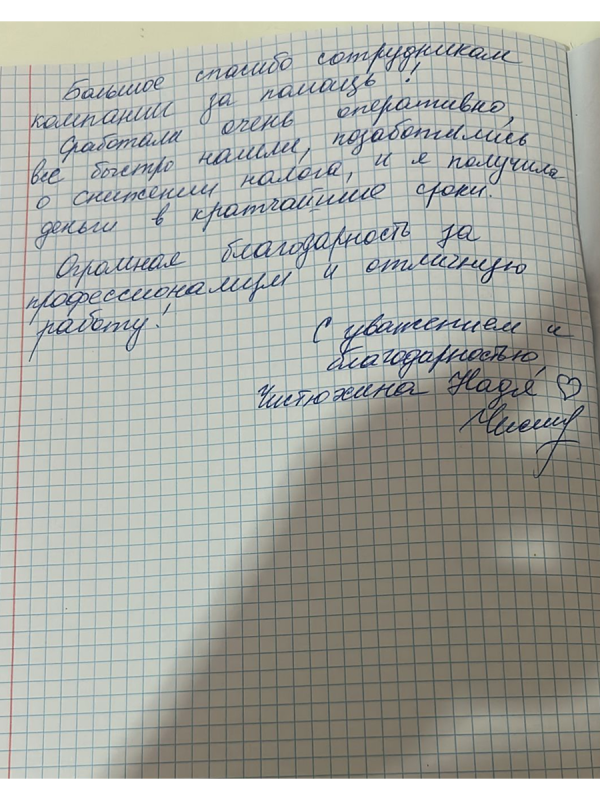 Большое спасибо сотрудникам
компании за помощь!
Сработали очень оперативно,
все быстро нашли, позаботились
о снижении налога, и я получила
деньги в кратчайшие сроки.
Огромная благодарность за
профессионализм и отличную
работу!
С уважением и
благодарностью,
Чистюхина Надя ♡